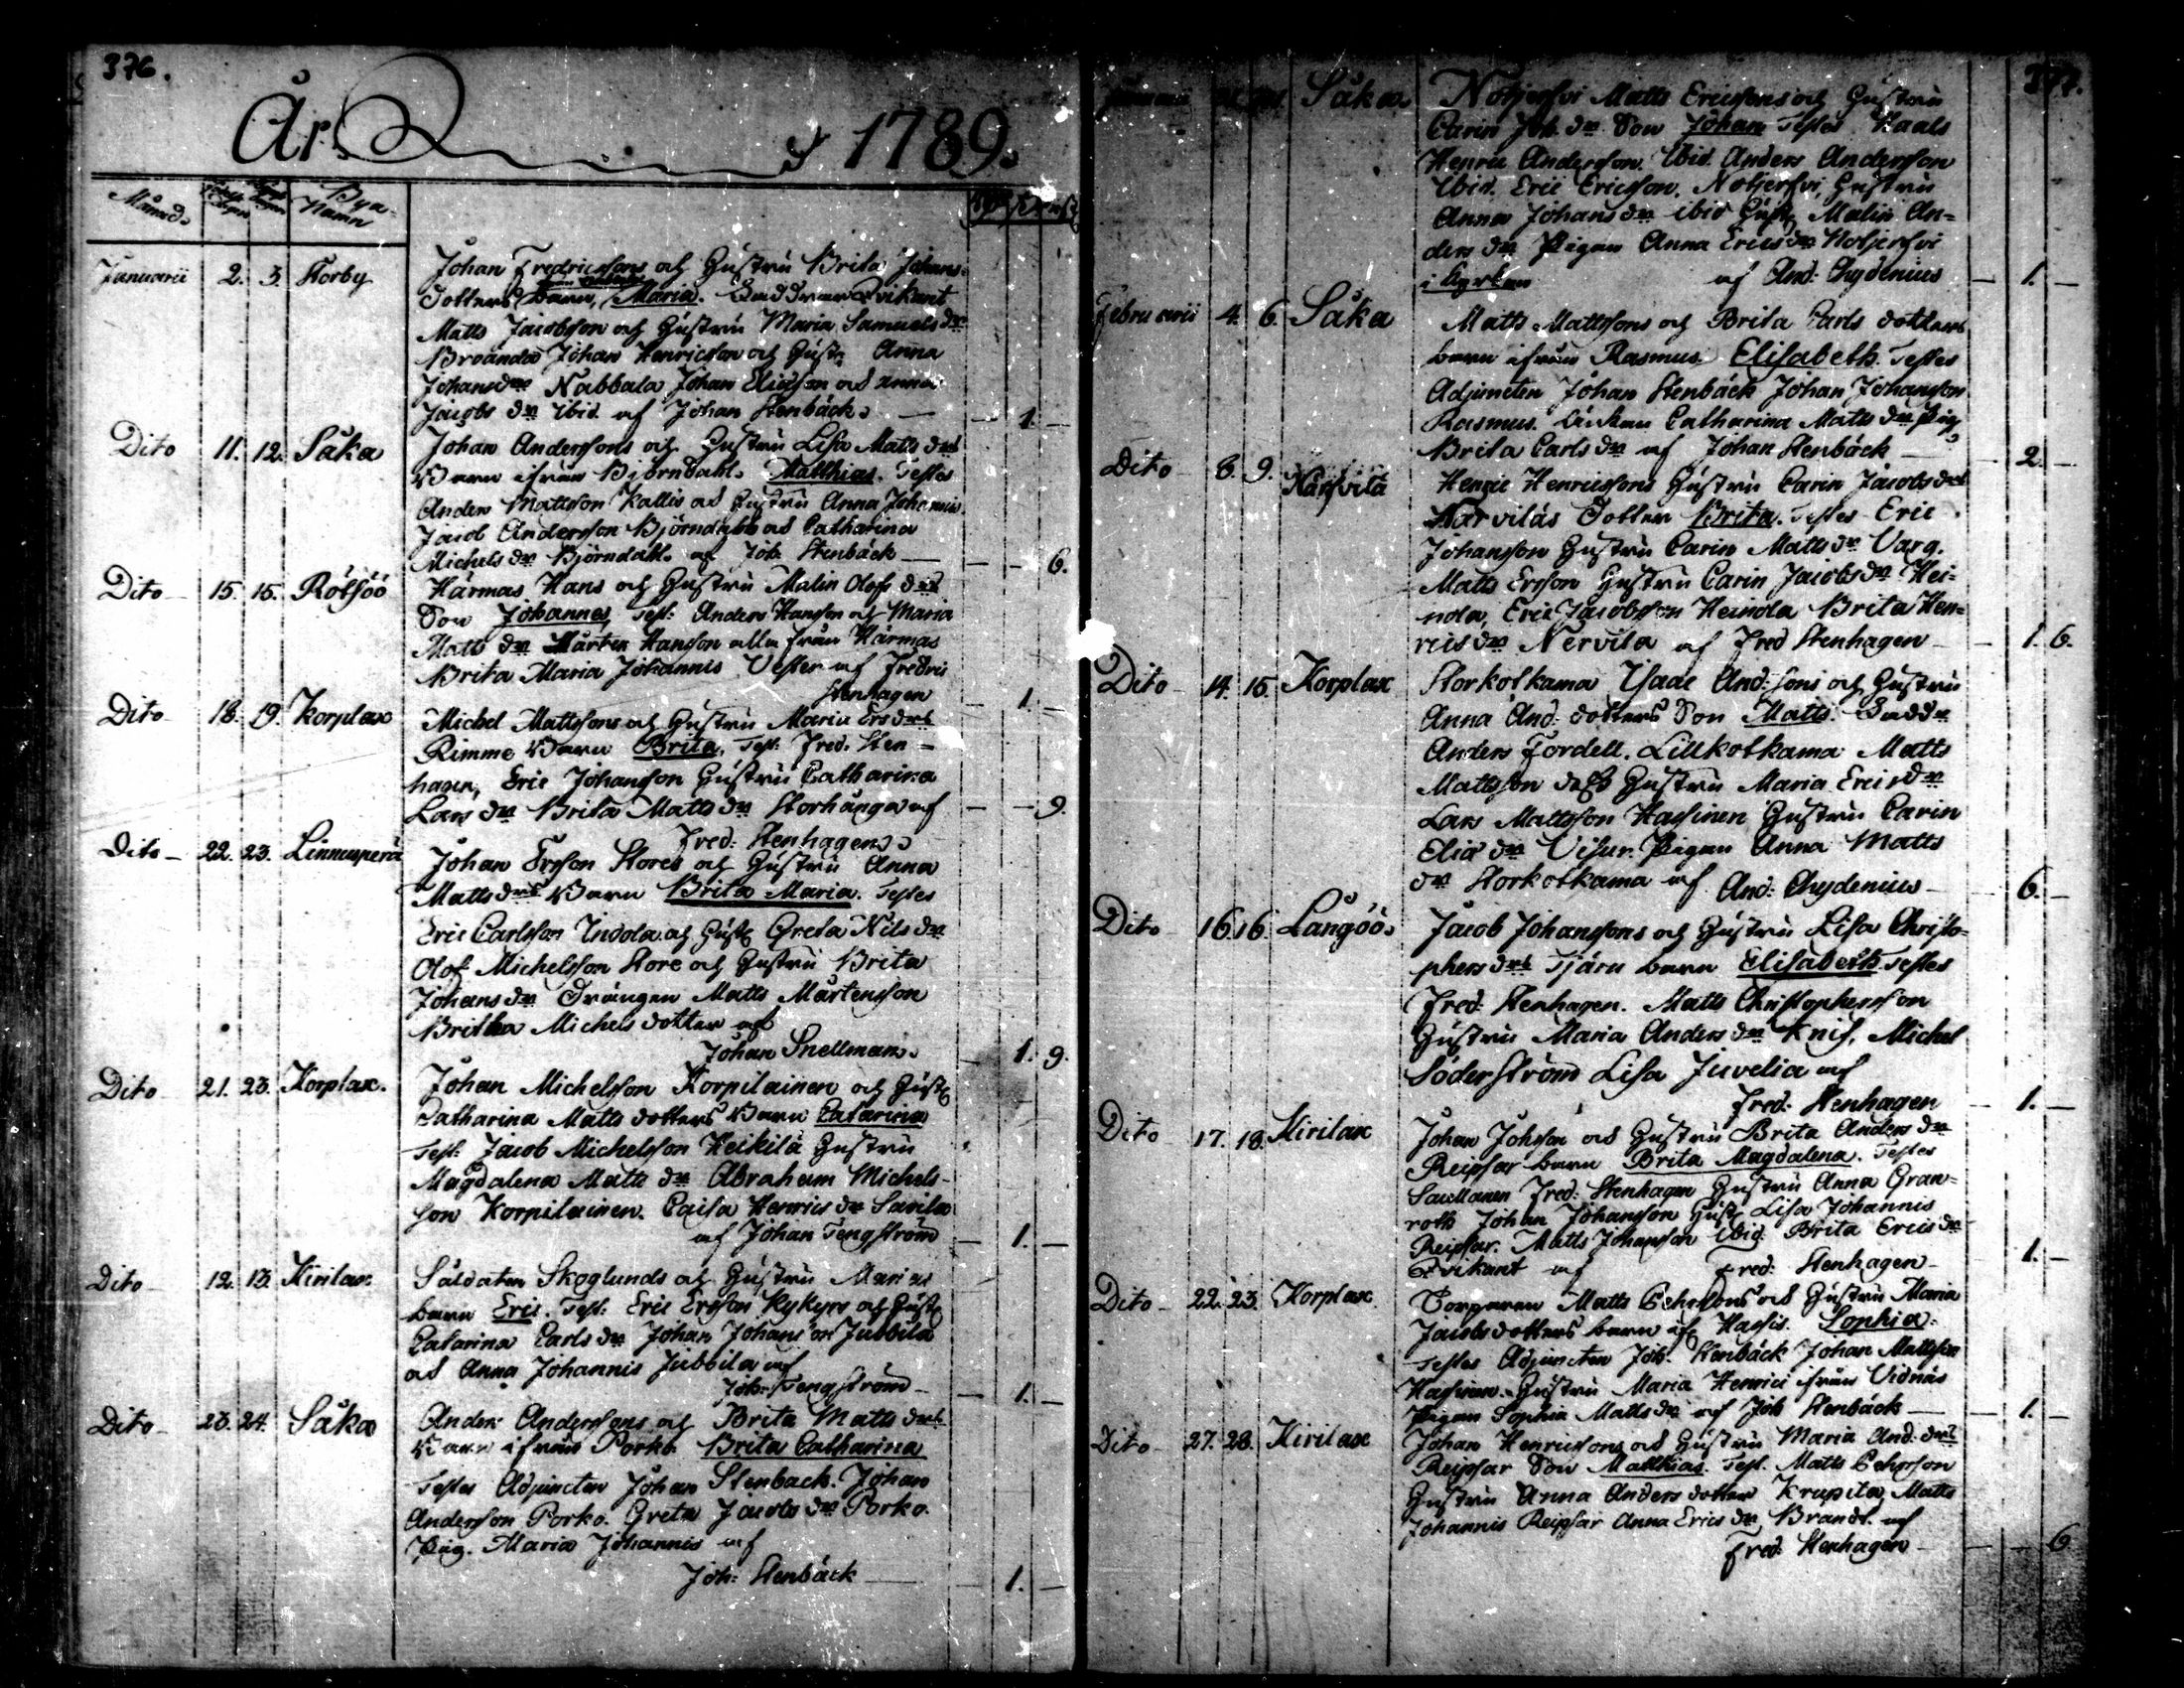 376.
År 1789.
Månad. Bya-Namn
Januarii 2. 3. Storby Johan Fredricssons och Hustru Brita Johans-
dotters Barn, Maria. Faddrar Qvikant
Matts Jacobsson och Hustru Maria Samuels dr
Broända Johan Henricsson och Hustr Anna
Johansdr Nabbala Johan Eliasson ad Anna
Jacobs dr ibid. af Johan Stenbäck. 1.
Dito 11. 12. Såka Johan Anderssons och Hustru Lisa Matts drs
Barn ifrån Björndahl. Matthias. Testes
Anders Mattsson Kallis ad Hustru Anna Johannis
Jacob Andersson Björndahl ad Catharina
Michels dr Björndahl. af Joh. Stenbäck 6.
Dito 15. 15. Röfsöö Härmas Hans och Hustru Malin Olofs drs
Son Johannes, Test: Anders Hansson och Maria
Matts dr Mårten Hansson alla från Härmas
Brita Maria Johannis Vester af Fredric
Stenhagen 1.
Dito 18. 19. Korplax Michel Mattssons och Hustru Maria Ers drs
Rimme Barn Brita, Test: Fred. Sten-
hagen, Eric Johansson Hustru Catharina
Lars dr Brita Matts dr Storhånga af 9.
Fred: Stenhagen
Dito 22. 23. Linnusperä Johan Ersson Stores och Hustru Anna
Matts drs Barn Brita Maria. Testes
Eric Carlsson Indola och Hustr Greta Nils dr
Olof Michelsson Store och Hustru Brita
Johans dr Drängen Matts Mårtensson
Britha Michels dotter af
Johan Snellman. 1. 9.
Dito 21. 23. Korplax. Johan Michelsson Korpilainen och Hustr
Catharina Matts dotters Barn Catarina
Test: Jacob Michelsson Heikilä Hustru
Magdalena Matts dr Abraham Michels-
son Korpilainen. Caisa Henrics dr Savila
af Johan Tengström 1.
Dito 12. 13. Kirilax Soldaten Skoglunds och Hustru Marias
barn Eric. Test: Eric Ersson Kykyrs och Hustr
Catarina Carls dr Johan Johansson Jubbila
ad Anna Johannis Jubbila af
Joh: Tengström 1.
Dito 23. 24. Såka Anders Anderssons och Brita Matts drs
Barn ifrån Porko Brita Catharina
Testes Adjuncten Johan Stenback. Johan
Andersson Porko. Greta Jacobs dr Porko.
Pig. Maria Johannis af
Joh: Stenbäck 1.
377.
Såka Matts Ericssons och Hustru
Carin Joh. dr Son Johan Testes
Henric Andersson. Ibid. Anders Andersson
Ibid. Eric Ericsson. Hustru
Anna Johans dr ibid Hustr Malin An-
ders dr Pigan Anna Erics dr
af And: Chydenius 1.
Februarii 4. 6. Såka Matts Mattssons och Brita Carls dotters
barn ifrån Rasmus. Elisabeth. Testes
Adjuncten Johan Stenbäck Johan Johansson
Rasmus. Änkan Catharina Matts dr Pig
Brita Carls dr af Johan Stenbäck 2.
Dito 8. 9. Närvilä Henric Henricssons Hustru Carin Jacobs drs
Närviläs Dotter Brita. Testes Eric
Johansson Hustru Carin Matts dr Varg.
Matts Ersson Hustru Carin Jacobs dr Hei-
nola, Eric Jacobsson Heinola Brita Hen-
rics dr Nervila af Fred Stenhagen 1. 6.
Dito 14. 15. Korplax Storkotkama Isaac And:sons och Hustru
Anna And: dotters Son Matts. Faddr
Anders Fordell. Lillkotkama Matts
Mattsson dess Hustru Maria Erics dr
Lars Mattsson Hassinen Hustru Carin
Elias dr Visur. Pigan Anna Matts
dr Storkotkama af And: Chydenius 6.
Dito 16 16. Långöö. Jacob Johanssons och Hustru Lisa Christo-
phers drs Tjäru barn Elisabeth Testes
Fred. Stenhagen. Matts Christophersson
Hustru Maria Anders dr Knif, Michel
Söderström Lisa Juvelia af
Fred: Stenhagen 1.
Dito 17. 18. Kirilax Johan Johsson ad Hustru Brita Anders dr
Reipsar barn Brita Magdalena. Testes
Saullanen Fred: Stenhagen Hustru Anna Gran-
roth Johan Johansson Hustr Lisa Johannis
Reipsar. Matts Johansson Ibid. Brita Erics dr
Qvikant af Fred: Stenhagen 1.
Dito 22. 23. Korplax Torparen Matts Pehrssons ad Hustru Maria
Jacobs dotters barn af Hassis. Sophia.
Testes Adjuncten Joh. Stenbäck Johan Mattsson
Hassinen. Hustru Maria Henrici ifrån Vidnäs
Pigan Sophia Matts dr af Joh Stenbäck 1.
Dito 27. 28. Kirilax Johan Henricssons ad Hustru Maria And. drs
Reipsar Son Matthias. Test. Matts Pehrsson
Hustru Anna Anders dotter Krupita, Matts
Johannis Reipsar Anna Erics dr Brandt. af
Fred: Stenhagen 6